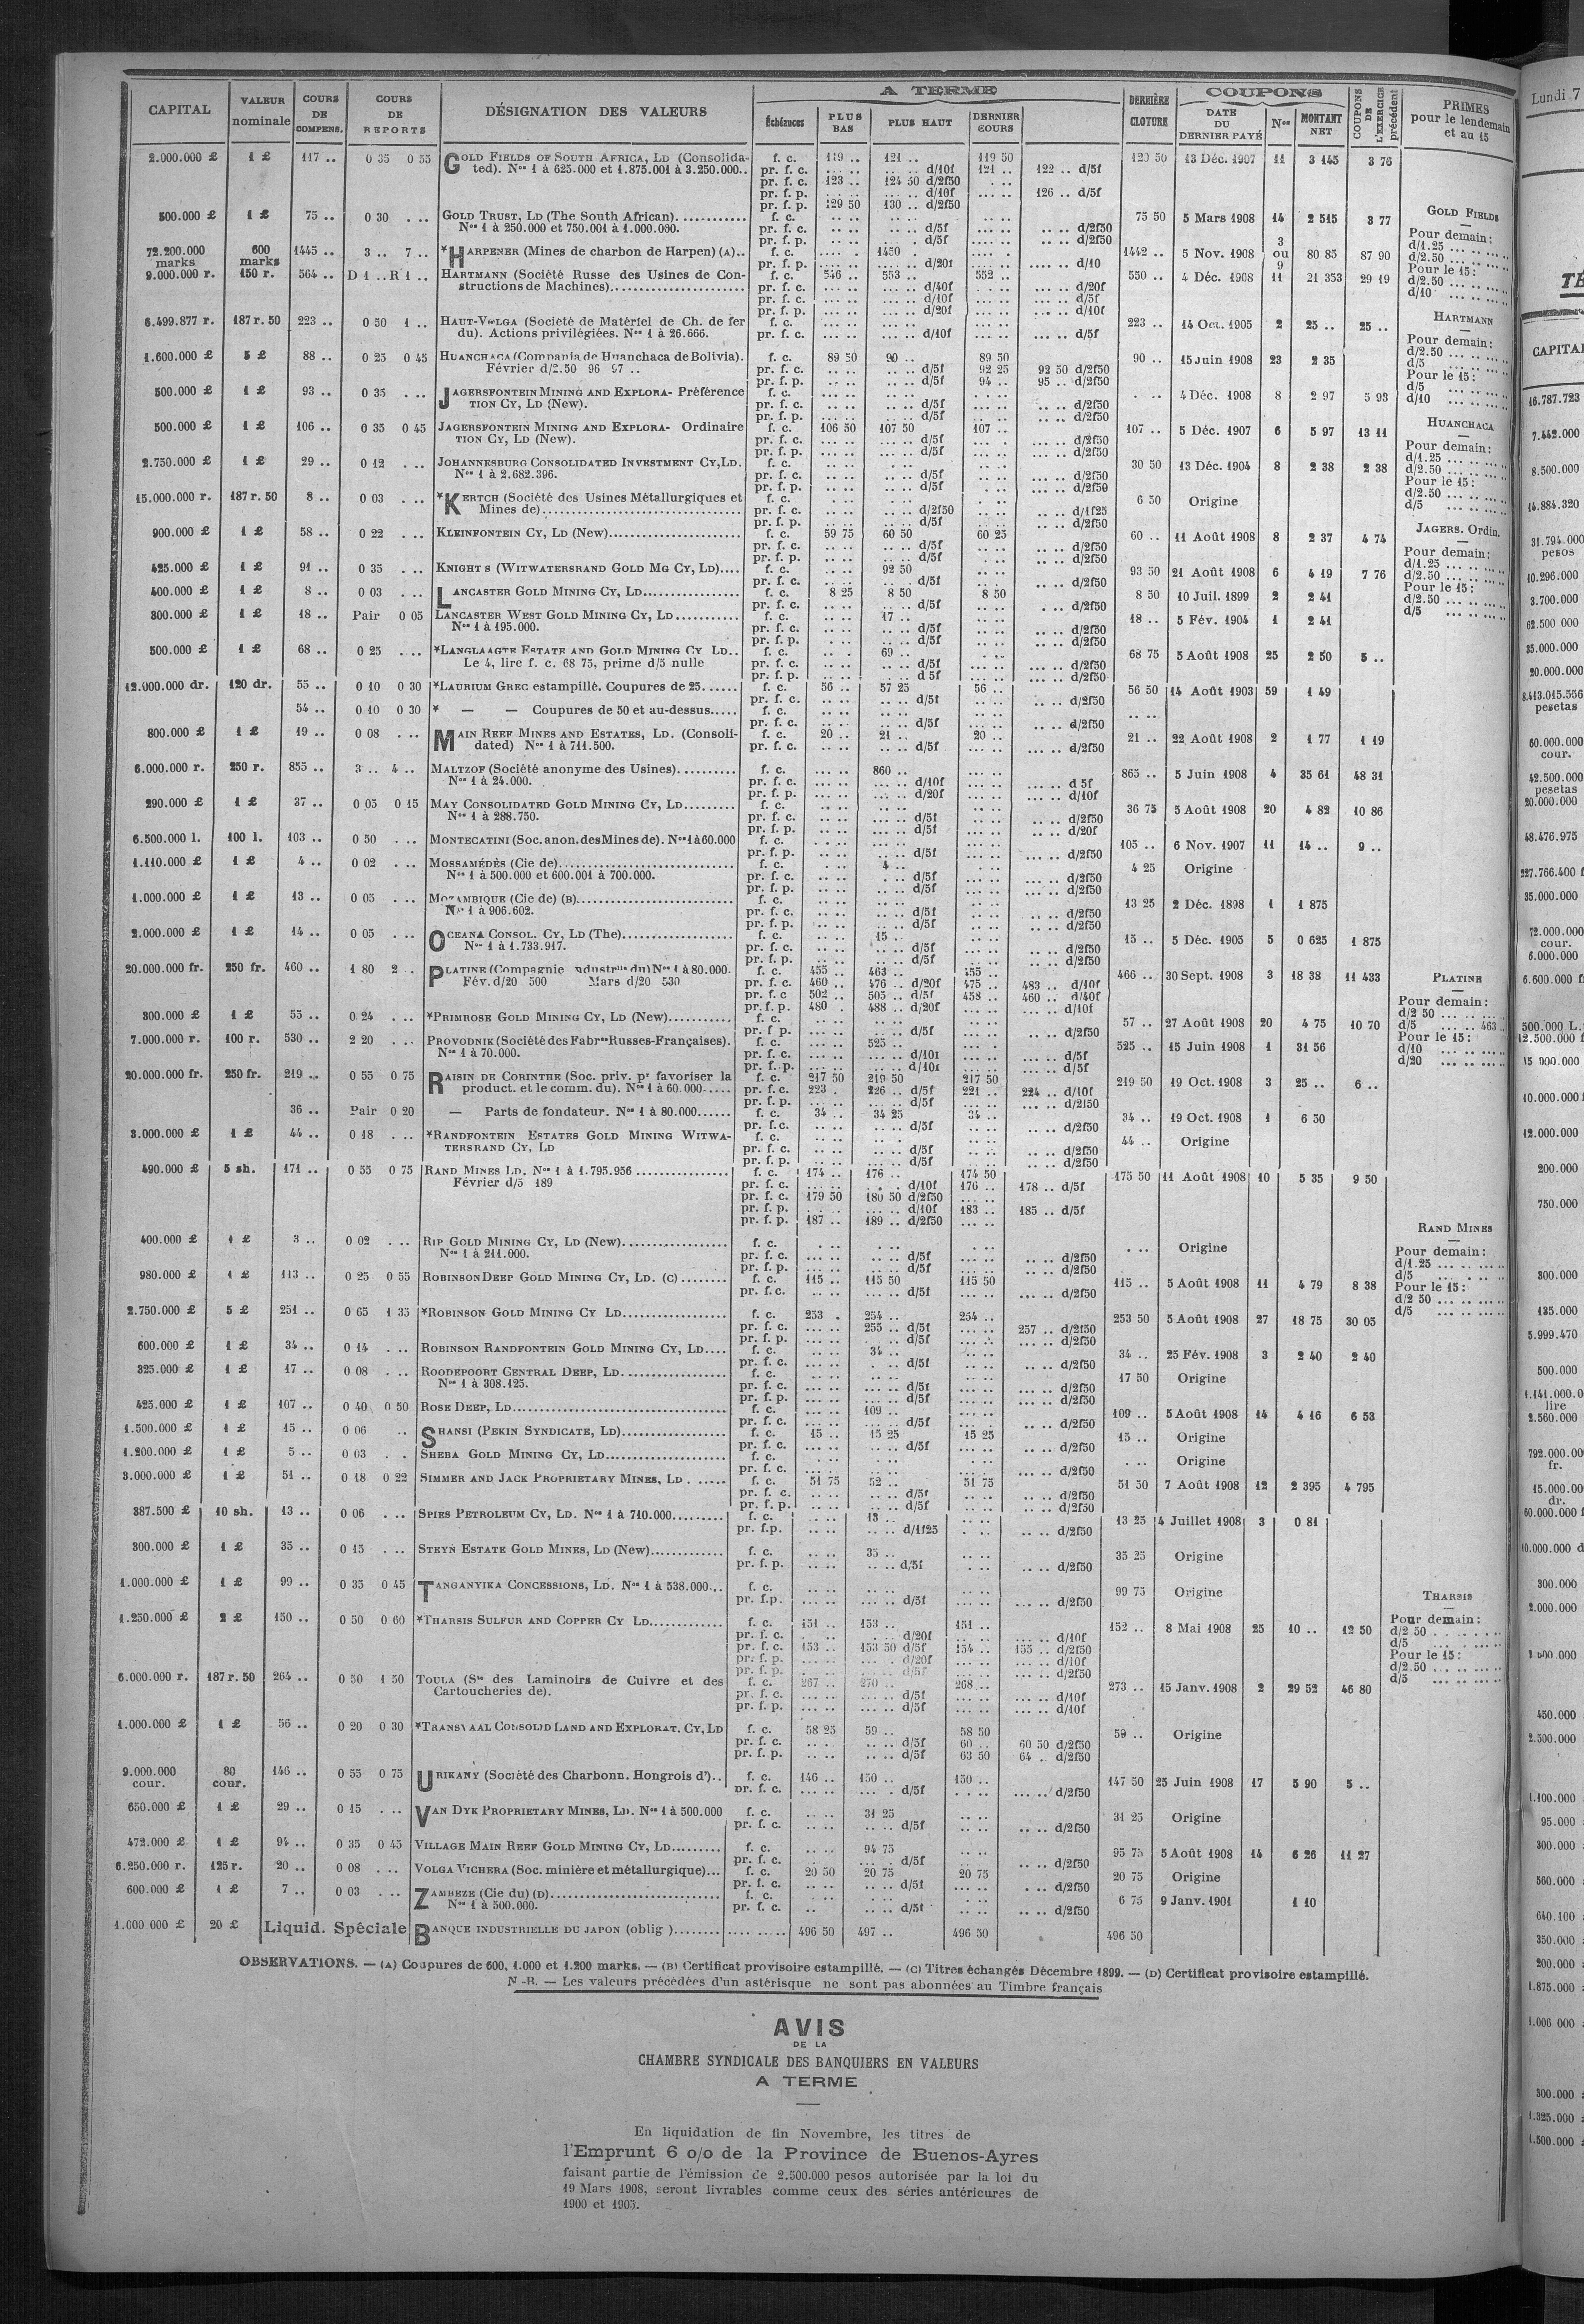 CAPITAL VALEUR nominale COURS DE COMPENS. COURS DE REPORTS DÉSIGNATION DES VALEURS A TERME Échéances PLUS BAS PLUS HAUT DERNIER COURS DERNIÈRE CLOTURE COUPONS DATE DU DERNIER PAYÉ Nos MONTANT NET COUPONS DE L'EXERCICE précédent PRIMES pour le lendemain et au 15
2.000.000 £ 1 £ 117 .. 0 35 0 55 GOLD FIELDS OF SOUTH AFRICA, LD (Consolida- f. c. 119 .. 121 .. 119 50 120 50 13 Déc. 1907 11 3 145 3 76
ted). Nos 1 à 625.000 et 1.875.001 à 3.250.000.. pr. f. c. .. .. .. .. d/10f 121 .. 122 .. d/5f
pr. f. c. 123 .. 124 50 d/2f50 . ..
pr. f. p. ... .. ... .. d/10f ... .. 126 .. d/5f
pr. f. p. 129 50 130 .. d/2f50
500.000 £ 1 £ 75 .. 0 30 . .. GOLD TRUST, LD (The South African)............ f. c. .. .. .. .. .. .. 75 50 5 Mars 1908 14 2 515 3 77
Nos 1 à 250.000 et 750.001 à 1.000.000. pr. f. c. .. .. .. .. d/5f .. .. .. .. d/2f50
pr. f. p. .. .. . d/5f .. .. .. .. d/2f50
72.200.000 marks 600 marks 1445 .. 3 .. 7 .. *HARPENER (Mines de charbon de Harpen) (A).. f. c. .... . 1450 . .... . 1442 .. 5 Nov. 1908 3 ou 9 80 85 87 90
pr. f. p. .... .. .... .. d/20f .... .. .... .. d/10
9.000.000 r. 150 r. 564 .. D 1 .. R 1 .. HARTMANN (Société Russe des Usines de Con- f. c. 546 .. 553 .. 552 .. 550 .. 4 Déc. 1908 11 21 353 29 19
structions de Machines)........................ pr. f. c. ... .. ... .. d/40f ... .. ... .. d/20f
pr. f. c. ... .. ... .. d/10f ... .. ... .. d/5f
pr. f. p. ... .. ... .. d/20f ... .. ... .. d/10f
6.499.877 r. 187 r. 50 223 .. 0 50 1 .. HAUT-VOLGA (Société de Matériel de Ch. de fer f. c. ... .. ... .. ... .. 223 .. 14 Oct. 1905 2 25 .. 25 ..
du). Actions privilégiées. Nos 1 à 26.666. pr. f. c. ... .. ... .. d/10f ... .. ... .. d/5f
1.600.000 £ 5 £ 88 .. 0 25 0 45 HUANCHACA (Compania de Huanchaca de Bolivia). f. c. 89 50 90 .. 89 50 90 .. 15 Juin 1908 23 2 35
Février d/2.50 96 97 .. pr. f. c. .. .. .. .. d/5f 92 25 92 50 d/2f50
pr. f. p. .. .. .. .. d/5f 94 .. 95 .. d/2f50
500.000 £ 1 £ 93 .. 0 35 . .. JAGERSFONTEIN MINING AND EXPLORA- Préférence f. c. .. .. .. .. .. .. . .. 4 Déc. 1908 8 2 97 5 93
TION CY, LD (New). pr. f. c. .. .. .. .. d/5f .. .. .. .. d/2f50
pr. f. p. .. .. .. .. d/5f .. .. .. .. d/2f50
500.000 £ 1 £ 106 .. 0 35 0 45 JAGERSFONTEIN MINING AND EXPLORA- Ordinaire f. c. 106 50 107 50 107 .. 107 .. 5 Déc. 1907 6 5 97 13 11
TION CY, LD (New). pr. f. c. .. .. .. .. d/5f ... . .. .. d/2f50
pr. f. p. .. .. .. .. d/5f .. .. .. .. d/2f50
2.750.000 £ 1 £ 29 .. 0 12 . .. JOHANNESBURG CONSOLIDATED INVESTMENT CY, LD. f. c. .. .. .. .. .. .. 30 50 13 Déc. 1904 8 2 38 2 38
Nos 1 à 2.682.396. pr. f. c. .. .. .. .. d/5f .. .. .. .. d/2f50
pr. f. p. .. .. .. .. d/5f . .. ... .. d/2f50
15.000.000 r. 187 r. 50 8 .. 0 03 . .. *KERTCH (Société des Usines Métallurgiques et f. c. .. .. . .. . .. 6 50 Origine
Mines de)................................ pr. f. c. .. .. .. .. d/2f50 .. .. ... .. d/1f25
pr. f. p. .. .. .. .. d/5f .. .. .. .. d/2f50
900.000 £ 1 £ 58 .. 0 22 . .. KLEINFONTEIN CY, LD (New)....................... f. c. 59 75 60 50 60 25 60 .. 11 Août 1908 8 2 37 4 74
pr. f. c. .. .. .. .. d/5f .. .. .. .. d/2f50
pr. f. p. .. .. .. .. d/5f .. .. .. .. d/2f50
425.000 £ 1 £ 91 .. 0 35 . .. KNIGHT S (WITWATERSRAND GOLD MG CY, LD).... f. c. .. .. 92 50 .. .. 93 50 21 Août 1908 6 4 19 7 76
pr. f. c. .. .. .. .. d/5f .. .. .. .. d/2f50
400.000 £ 1 £ 8 .. 0 03 . .. LANCASTER GOLD MINING CY, LD............... f. c. 8 25 8 50 8 50 8 50 10 Juil. 1899 2 2 41
pr. f. c. .. .. .. .. d/5f .. .. . .. d/2f50
300.000 £ 1 £ 18 .. Pair 0 05 LANCASTER WEST GOLD MINING CY, LD........... f. c. .. .. 17 .. .. .. 18 .. 5 Fév. 1904 1 2 41
Nos 1 à 195.000. pr. f. c. .. .. .. .. d/5f .. .. .. .. d/2f50
pr. f. p. .. .. .. .. d/5f .. .. .. .. d/2f50
500.000 £ 1 £ 68 .. 0 25 . .. *LANGLAAGTE ESTATE AND GOLD MINING CY LD.. f. c. .. .. 69 .. . .. 68 75 5 Août 1908 25 2 50 5 ..
Le 4, lire f. c. 68 75, prime d/5 nulle pr. f. c. .. .. .. .. d/5f .. .. .. .. d/2f50
pr. f. p. .. .. .. .. d 5f .. .. ... .. d/2f50
12.000.000 dr. 120 dr. 55 .. 0 10 0 30 *LAURIUM GREC estampillé. Coupures de 25...... f. c. 56 .. 57 25 56 .. 56 50 14 Août 1903 59 1 49
pr. f. c. .. .. .. .. d/5f .. .. .. .. d/2f50
54 .. 0 10 0 30 * — — Coupures de 50 et au-dessus..... f. c. .. .. .. .. .. .. .. ..
pr. f. c. .. .. .. .. d/5f ... .. .. .. d/2f50
800.000 £ 1 £ 19 .. 0 08 . .. MAIN REEF MINES AND ESTATES, LD. (Consoli- f. c. 20 .. 21 .. 20 .. 21 .. 22 Août 1908 2 1 77 1 19
dated) Nos 1 à 711.500. pr. f. c. .. .. .. .. d/5f ... .. ... .. d/2f50
6.000.000 r. 250 r. 855 .. 3 .. 4 .. MALTZOF (Société anonyme des Usines).......... f. c. ... .. 860 .. ... .. 865 .. 5 Juin 1908 4 35 61 48 31
Nos 1 à 24.000. pr. f. c. ... .. ... .. d/10f ... .. ... .. d 5f
pr. f. p. ... .. ... .. d/20f ... .. ... .. d/10f
290.000 £ 1 £ 37 .. 0 05 0 15 MAY CONSOLIDATED GOLD MINING CY, LD......... f. c. .. .. .. .. .. .. 36 75 5 Août 1908 20 4 82 10 86
Nos 1 à 288.750. pr. f. c. .. .. .. .. d/5f .. .. .. .. d/2f50
pr. f. p. .. .. .. .. d/5f ... .. .. .. d/20f
6.500.000 l. 100 l. 103 .. 0 50 . .. MONTECATINI (Soc. anon. des Mines de). Nos 1 à 60.000 f. c. ... .. ... .. ... .. 105 .. 6 Nov. 1907 11 14 .. 9 ..
pr. f. p. .. .. .. .. d/5f ... .. ... .. d/2f50
1.110.000 £ 1 £ 4 .. 0 02 . .. MOSSAMÉDÈS (Cie de)............................ f. c. .. .. 4 .. . .. 4 25 Origine
Nos 1 à 500.000 et 600.001 à 700.000. pr. f. c. .. .. . .. d/5f .. .. ... .. d/2f50
pr. f. p. .. .. .. .. d/5f . .. ... .. d/2f50
1.000.000 £ 1 £ 13 .. 0 05 . .. MOZAMBIQUE (Cie de) (B)......................... f. c. .. .. .. .. .. .. 13 25 2 Déc. 1898 1 1 875
Nos 1 à 906.602. pr. f. c. .. .. .. .. d/5f .. .. .. .. d/2f50
pr. f. p. .. .. .. .. d/5f .. .. .. .. d/2f50
2.000.000 £ 1 £ 14 .. 0 05 . .. OCEANA CONSOL. CY, LD (The)................... f. c. .. .. 15 .. .. .. 15 .. 5 Déc. 1905 5 0 625 1 875
Nos 1 à 1.733.917. pr. f. c. .. .. .. .. d/5f .. .. .. .. d/2f50
pr. f. p. .. .. .. .. d/5f .. .. .. .. d/2f50
20.000.000 fr. 250 fr. 460 .. 1 80 2 .. PLATINE (Compagnie ndustrlle du) Nos 1 à 80.000. f. c. 455 .. 463 .. 455 .. 466 .. 30 Sept. 1908 3 18 38 11 433
Fév. d/20 500 Mars d/20 530 pr. f. c. 460 .. 476 .. d/20f 475 .. 483 .. d/10f
pr. f. c 502 .. 505 .. d/5f 458 .. 460 .. d/40f
pr. f. p. 480 . 488 .. d/20f ... .. ... .. d/10f
300.000 £ 1 £ 55 .. 0 24 . .. *PRIMROSE GOLD MINING CY, LD (New)........... f. c. .. .. .. .. .. .. 57 .. 27 Août 1908 20 4 75 10 70
pr. f p. .. .. .. .. d/5f .. .. .. .. d/2f50
7.000.000 r. 100 r. 530 .. 2 20 . .. PROVODNIK (Société des Fabres Russes-Françaises). f. c. ... .. 525 .. ... .. 525 .. 15 Juin 1908 1 31 56
Nos 1 à 70.000. pr. f. c. ... .. ... .. d/10f ... .. ... .. d/5f
pr. f. p. ... .. ... .. d/10f ... .. ... .. d/5f
20.000.000 fr. 250 fr. 219 .. 0 55 0 75 RAISIN DE CORINTHE (Soc. priv. pr favoriser la f. c. 217 50 219 50 217 50 219 50 19 Oct. 1908 3 25 .. 6 ..
product. et le comm. du). Nos 1 à 60.000..... pr. f. c. 223 . 226 .. d/5f 221 .. 224 .. d/10f
pr. f. p. ... .. ... .. d/5f ... .. ... .. d/2f50
36 .. Pair 0 20 — Parts de fondateur. Nos 1 à 80.000...... f. c. 34 .. 34 25 34 .. 34 .. 19 Oct. 1908 1 6 50
pr. f.c. .. .. .. .. d/5f .. .. .. .. d/2f50
3.000.000 £ 1 £ 44 .. 0 18 . .. *RANDFONTEIN ESTATES GOLD MINING WITWA- f. c. .. .. .. . .. .. 44 .. Origine
TERSRAND CY, LD pr. f. c. .. .. .. .. d/5f .. .. .. .. d/2f50
pr. f. p. .. .. .. .. d/5f .. .. .. .. d/2f50
490.000 £ 5 sh. 171 .. 0 55 0 75 RAND MINES LD. Nos 1 à 1.795.956 ................ f. c. 174 .. 176 .. 174 50 175 50 11 Août 1908 10 5 35 9 50
Février d/5 189 pr. f. c. ... .. . . d/10f 176 .. 178 .. d/5f
pr. f. c. 179 50 180 50 d/2f50 ... ..
pr. f. p. ... .. ... .. d/10f 183 .. 185 .. d/5f
pr. f. p. 187 .. 189 .. d/2f50 ... ..
400.000 £ 1 £ 3 .. 0 02 . .. RIP GOLD MINING CY, LD (New).................. f. c. . .. . .. . .. . .. Origine
Nos 1 à 211.000. pr. f. c. .. .. .. .. d/5f .. .. .. .. d/2f50
pr. f. p. .. .. .. .. d/5f .. .. .. .. d/2f50
980.000 £ 1 £ 113 .. 0 25 0 55 ROBINSON DEEP GOLD MINING CY, LD. (C)........ f. c. 115 .. 115 50 115 50 115 .. 5 Août 1908 11 4 79 8 38
pr. f.c. .. .. .. .. d/5f ... .. ... .. d/2f50
2.750.000 £ 5 £ 251 .. 0 65 1 35 *ROBINSON GOLD MINING CY LD.................. f. c. 253 . 254 .. 254 .. 253 50 5 Août 1908 27 18 75 30 05
pr. f. c. ... .. 255 .. d/5f ... .. 257 .. d/2f50
pr. f. p. ... .. ... .. d/5f ... .. ... .. d/2f50
600.000 £ 1 £ 34 .. 0 14 . .. ROBINSON RANDFONTEIN GOLD MINING CY, LD.... f. c. .. .. 34 .. .. .. 34 .. 25 Fév. 1908 3 2 40 2 40
pr. f. c. .. .. . .. d/5f .. .. .. .. d/2f50
325.000 £ 1 £ 17 .. 0 08 . .. ROODEPOORT CENTRAL DEEP, LD.................. f. c. .. .. .. .. .. .. 17 50 Origine
Nos 1 à 308.125. pr. f. c. .. .. .. .. d/5f .. .. .. .. d/2f50
pr. f. p. .. .. .. .. d/5f .. .. .. .. d/2f50
425.000 £ 1 £ 107 .. 0 40 0 50 ROSE DEEP, LD.................................... f. c. ... .. 109 .. ... .. 109 .. 5 Août 1908 14 4 16 6 53
pr. f. c. ... .. ... .. d/5f ... .. ... .. d/2f50
1.500.000 £ 1 £ 15 .. 0 06 .. SHANSI (PEKIN SYNDICATE, LD).................. f. c. 15 .. 15 25 15 25 15 .. Origine
pr. f. c. .. .. .. .. d/5f .. .. .. .. d/2f50
1.200.000 £ 1 £ 5 .. 0 03 . . SHEBA GOLD MINING CY, LD..................... f. c. . .. . .. . .. . .. Origine
pr. f. c. .. .. ... .. d/2f50
3.000.000 £ 1 £ 51 .. 0 18 0 22 SIMMER AND JACK PROPRIETARY MINES, LD . ..... f. c. 51 75 52 .. 51 75 51 50 7 Août 1908 12 2 395 4 795
pr. f. c. .. .. .. .. d/5f .. .. .. .. d/2f50
pr. f. p. .. .. .. .. d/5f .. .. .. .. d/2f50
387.500 £ 10 sh. 13 .. 0 06 . .. SPIES PETROLEUM CY, LD. Nos 1 à 710.000......... f. c. .. .. 13 .. .. .. 13 25 4 Juillet 1908 3 0 81
pr. f.p. .. .. .. .. d/1f25 . .. .. .. d/2f50
300.000 £ 1 £ 35 .. 0 15 . .. STEYN ESTATE GOLD MINES, LD (New)............. f. c. .. .. 35 .. .. .. 35 25 Origine
pr. f. p. .. .. .. .. d/5f .. .. .. .. d/2f50
1.000.000 £ 1 £ 99 .. 0 35 0 45 TANGANYIKA CONCESSIONS, LD. Nos 1 à 538.000... f. c. .. .. .. .. .. .. 99 75 Origine
pr. f.p. .. .. .. .. d/5f ... .. .. .. d/2f50
1.250.000 £ 2 £ 150 .. 0 50 0 60 *THARSIS SULFUR AND COPPER CY LD............. f. c. 151 .. 153 .. 151 .. 152 .. 8 Mai 1908 25 10 .. 12 50
pr. f. c. . .. . .. d/20f .. .. ... .. d/10f
pr. f. c. 153 .. 153 50 d/5f 154 .. 155 .. d/2f50
pr. f. p. ... .. ... . d/20f ... .. ... .. d/10f
pr. f. p. . .. ... .. d/5f ... .. ... .. d/2f50
6.000.000 r. 187 r. 50 264 .. 0 50 1 50 TOULA (Sté des Laminoirs de Cuivre et des f. c. 267 .. 270 .. 268 .. 273 .. 15 Janv. 1908 2 29 52 46 80
Cartoucheries de). pr. f. c. ... .. ... .. d/5f ... .. ... .. d/10f
pr. f. p. ... .. ... .. d/5f ... .. ... .. d/10f
1.000.000 £ 1 £ 56 .. 0 20 0 30 *TRANSVAAL CONSOLID LAND AND EXPLORAT. CY, LD f. c. 58 25 59 .. 58 50 59 .. Origine
pr. f. c. .. .. .. .. d/5f 60 .. 60 50 d/2f50
pr. f. p. .. .. .. .. d/5f 63 50 64 .. d/2f50
9.000.000 cour. 80 cour. 146 .. 0 55 0 75 URIKANY (Société des Charbonn. Hongrois d').. f. c. 146 .. 150 .. 150 .. 147 50 25 Juin 1908 17 5 90 5 ..
pr. f. c. ... .. ... .. d/5f ... .. ... .. d/2f50
650.000 £ 1 £ 29 .. 0 15 . .. VAN DYK PROPRIETARY MINES, LD. Nos 1 à 500.000 f. c. .. .. 31 25 .. .. 31 25 Origine
pr. f. c. .. .. .. .. d/5f .. .. .. .. d/2f50
472.000 £ 1 £ 94 .. 0 35 0 45 VILLAGE MAIN REEF GOLD MINING CY, LD......... f. c. .. .. 94 75 .. .. 95 75 5 Août 1908 14 6 26 11 27
pr. f. c. .. .. .. . d/5f .. .. .. .. d/2f50
6.250.000 r. 125 r. 20 .. 0 08 . .. VOLGA VICHERA (Soc. minière et métallurgique)... f. c. 20 50 20 75 20 75 20 75 Origine
pr. f. c. .. .. .. .. d/5f ... .. . .. d/2f50
600.000 £ 1 £ 7 .. 0 03 . .. ZAMBEZE (Cie du) (D)............................ f. c. . .. . .. . .. 6 75 9 Janv. 1901 1 10
Nos 1 à 500.000. pr. f. c. .. .. .. d/5f .. .. .. .. d/2f50
1.000 000 £ 20 £ Liquid. Spéciale BANQUE INDUSTRIELLE DU JAPON (oblig )........ .... ..... 496 50 497 .. 496 50 496 50
GOLD FIELDS
Pour demain:
d/1.25 ... .. ... ..
d/2.50 ... .. ... ..
Pour le 15:
d/2.50 ... .. ... ..
d/10 ... .. ... ..
HARTMANN
Pour demain:
d/2.50 ... .. ... ..
d/5 ... .. ... ..
Pour le 15:
d/5 ... .. ... ..
d/10 ... .. ... ..
HUANCHACA
Pour demain:
d/1.25 ... .. ... ..
d/2.50 ... .. ... ..
Pour le 15:
d/2.50 ... .. ... ..
d/5 ... .. ... ..
JAGERS. Ordin.
Pour demain:
d/1.25 ... .. ... ..
d/2.50 ... .. ... ..
Pour le 15:
d/2.50 ... .. ... ..
d/5 ... .. ... ..
PLATINE
Pour demain:
d/2 50 ... .. ... ..
d/5 ... .. 463 ..
Pour le 15:
d/10 ... .. ... ..
d/20 ... .. ... ..
RAND MINES
Pour demain:
d/1.25 ... .. ... ..
d/5 ... . .. ..
Pour le 15:
d/2 50 ... .. ... ..
d/5 ... .. ... ..
THARSIS
Pour demain:
d/2 50 . . . . .. ..
d/5 ... . ... ..
Pour le 15:
d/2.50 ... .. ... ..
d/5 ... .. ... ..
OBSERVATIONS. — (A) Coupures de 600, 1.000 et 1.200 marks. — (B) Certificat provisoire estampillé. — (C) Titres échangés Décembre 1899. — (D) Certificat provisoire estampillé.
N -B. — Les valeurs précédées d'un astérisque ne sont pas abonnées au Timbre français
AVIS
DE LA
CHAMBRE SYNDICALE DES BANQUIERS EN VALEURS
A TERME
En liquidation de fin Novembre, les titres de
l'Emprunt 6 o/o de la Province de Buenos-Ayres
faisant partie de l'émission de 2.500.000 pesos autorisée par la loi du
19 Mars 1908, seront livrables comme ceux des séries antérieures de
1900 et 1905.
Lundi 7
TÉ
CAPITAL
16.787.723
7.442.000
8.500.000
14.884.320
31.794.000
pesos
10.296.000
3.700.000
62.500 000
35.000.000
20.000.000
8.413.015.556
pesetas
60.000.000
cour.
42.500.000
pesetas
20.000.000
48.476.975
227.766.400 f
35.000.000
72.000.000
cour.
6.000.000
6.600.000 f
500.000 L.
12.500.000 f
15 000.000
10.000.000
12.000.000
200.000
750.000
300.000
135.000
5.999.470
500.000
1.141.000.0
lire
2.560.000
792.000.00
fr.
15.000.00
dr.
60.000.000 f
10.000.000 d
300.000
2.000.000
450.000
2.500.000
1.100.000
95.000
300.000
560.000
640.100
350.000
200.000
1.875.000
1.006 000
300.000
1.325.000
1.500.000